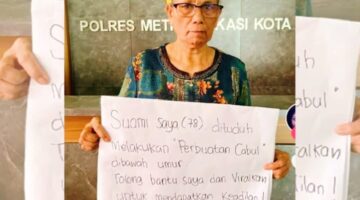 POLRES MET KASI KOTA
Suami saya (78) dituduh
melakukan "Perbuatan Cabul"
dibawah umur
Tolong bantu saya dan Viralkan
untuk mendapatkan Keadilan!